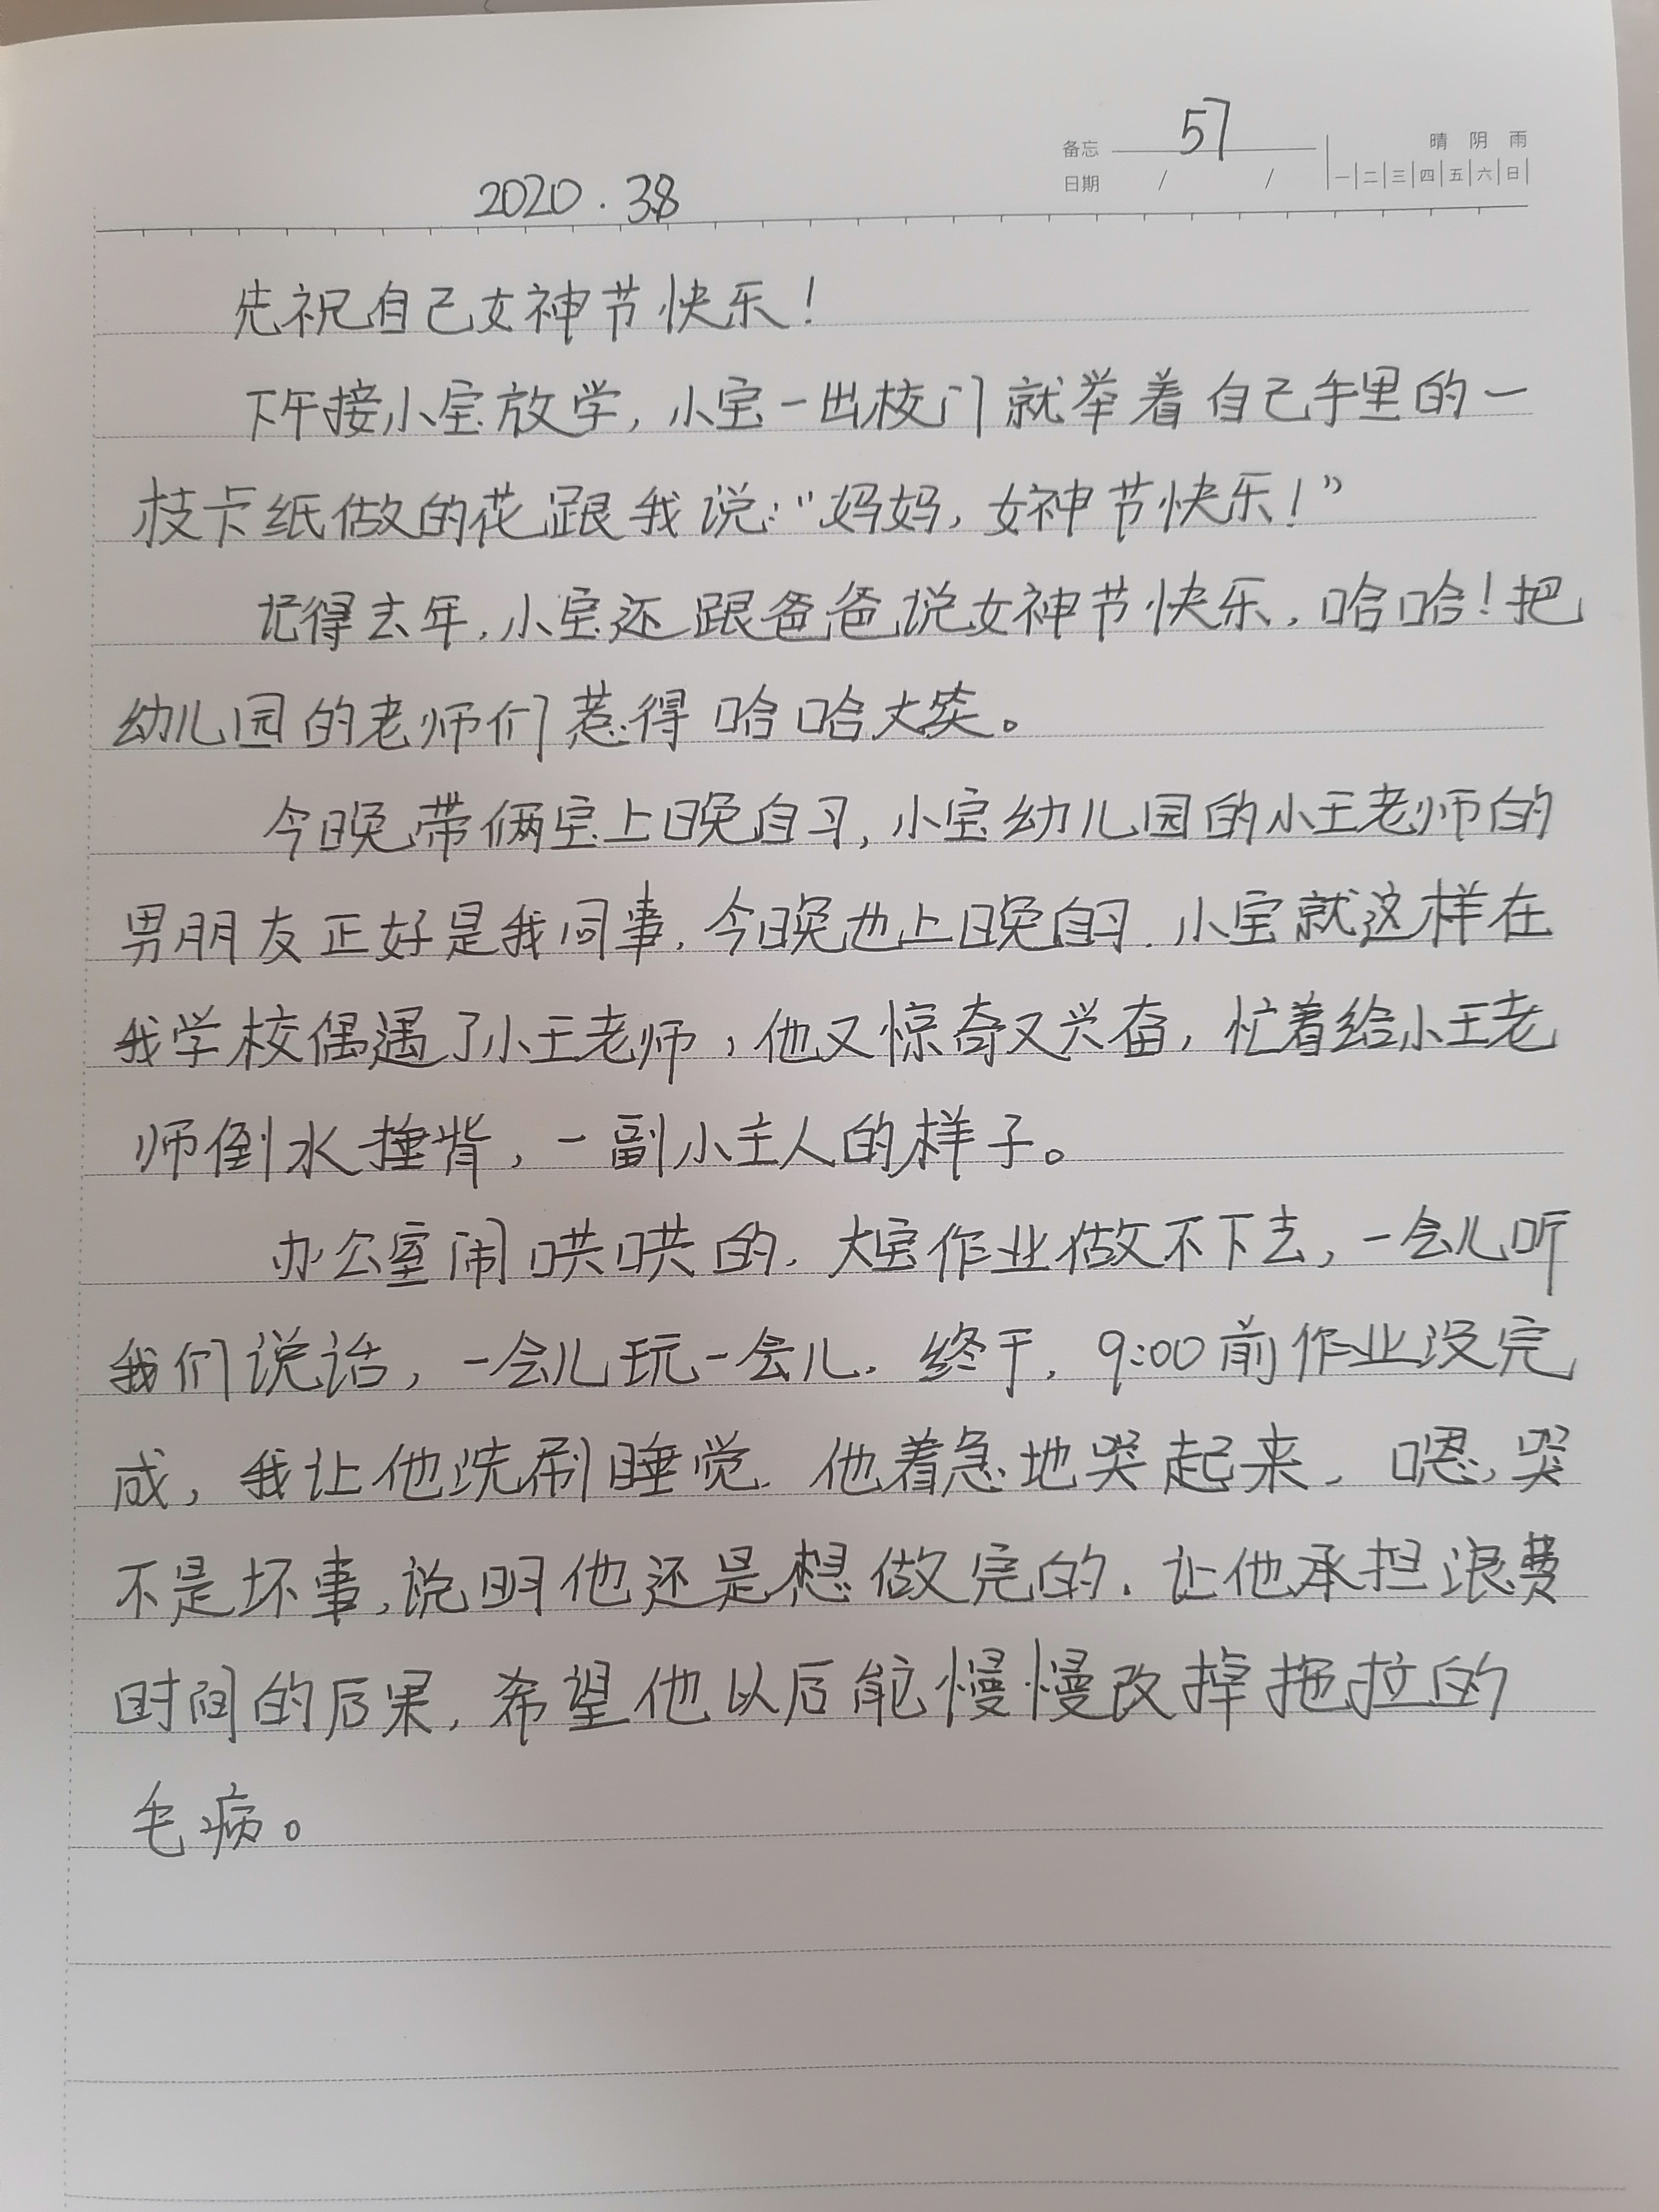 备忘 57 晴 阴 雨
日期 / / 一 二 三 四 五 六 日
2020.3.8
先祝自己女神节快乐！
下午接小宝放学，小宝一出校门就举着自己手里的一
枝卡纸做的花跟我说：“妈妈，女神节快乐！”
记得去年，小宝还跟爸爸说女神节快乐，哈哈！把
幼儿园的老师们惹得哈哈大笑。
今晚带俩宝上晚自习，小宝幼儿园的小王老师的
男朋友正好是我同事，今晚也上晚自习．小宝就这样在
我学校偶遇了小王老师，他又惊奇又兴奋，忙着给小王老
师倒水捶背，一副小主人的样子。
办公室闹哄哄的．大宝作业做不下去，一会儿听
我们说话，一会儿玩一会儿．终于，9:00前作业没完
成，我让他洗刷睡觉．他着急地哭起来．嗯，哭
不是坏事，说明他还是想做完的．让他承担浪费
时间的后果，希望他以后能慢慢改掉拖拉的
毛病。